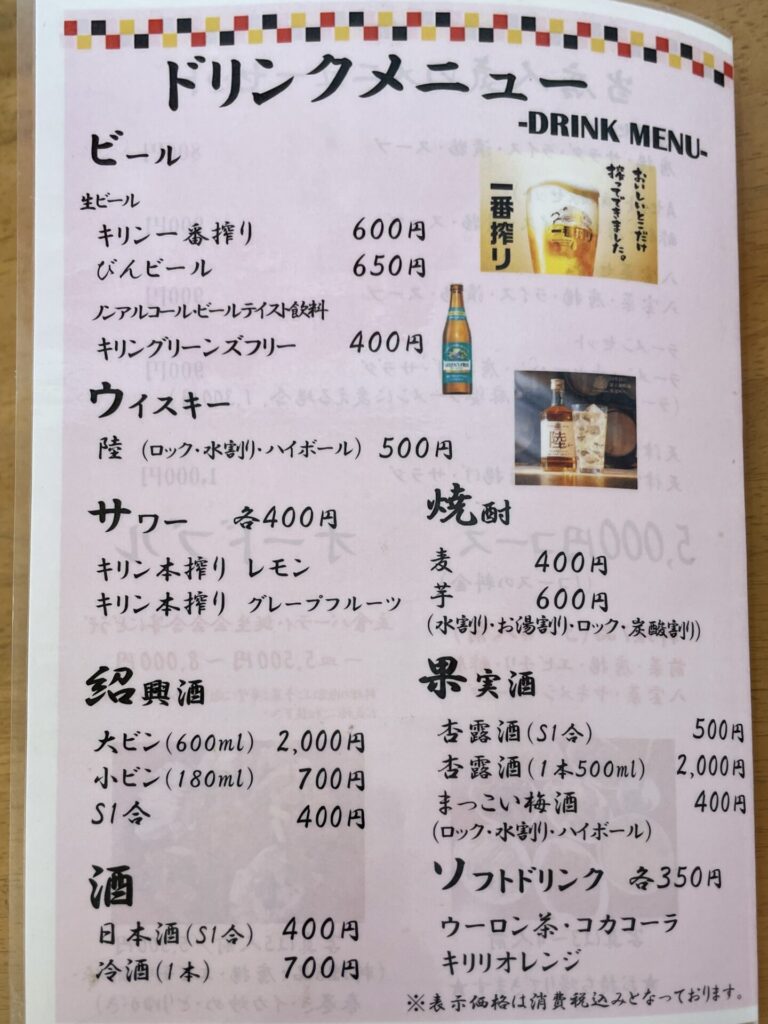 ドリンクメニュー
-DRINK MENU-
ビール
生ビール
キリン一番搾り 600円
びんビール 650円
おいしいとこだけ
搾ってできました。
一番搾り
ノンアルコール・ビールテイスト飲料
キリングリーンズフリー 400円
ウイスキー
陸 (ロック・水割り・ハイボール) 500円
陸
サワー 各400円
キリン本搾り レモン
キリン本搾り グレープフルーツ
焼酎
麦 400円
芋 600円
(水割り・お湯割り・ロック・炭酸割り)
紹興酒
大ビン(600ml) 2,000円
小ビン(180ml) 700円
S1合 400円
果実酒
杏露酒(S1合) 500円
杏露酒(1本500ml) 2,000円
まっこい梅酒 400円
(ロック・水割り・ハイボール)
酒
日本酒(S1合) 400円
冷酒(1本) 700円
ソフトドリンク 各350円
ウーロン茶・コカコーラ
キリリオレンジ
※表示価格は消費税込みとなっております。